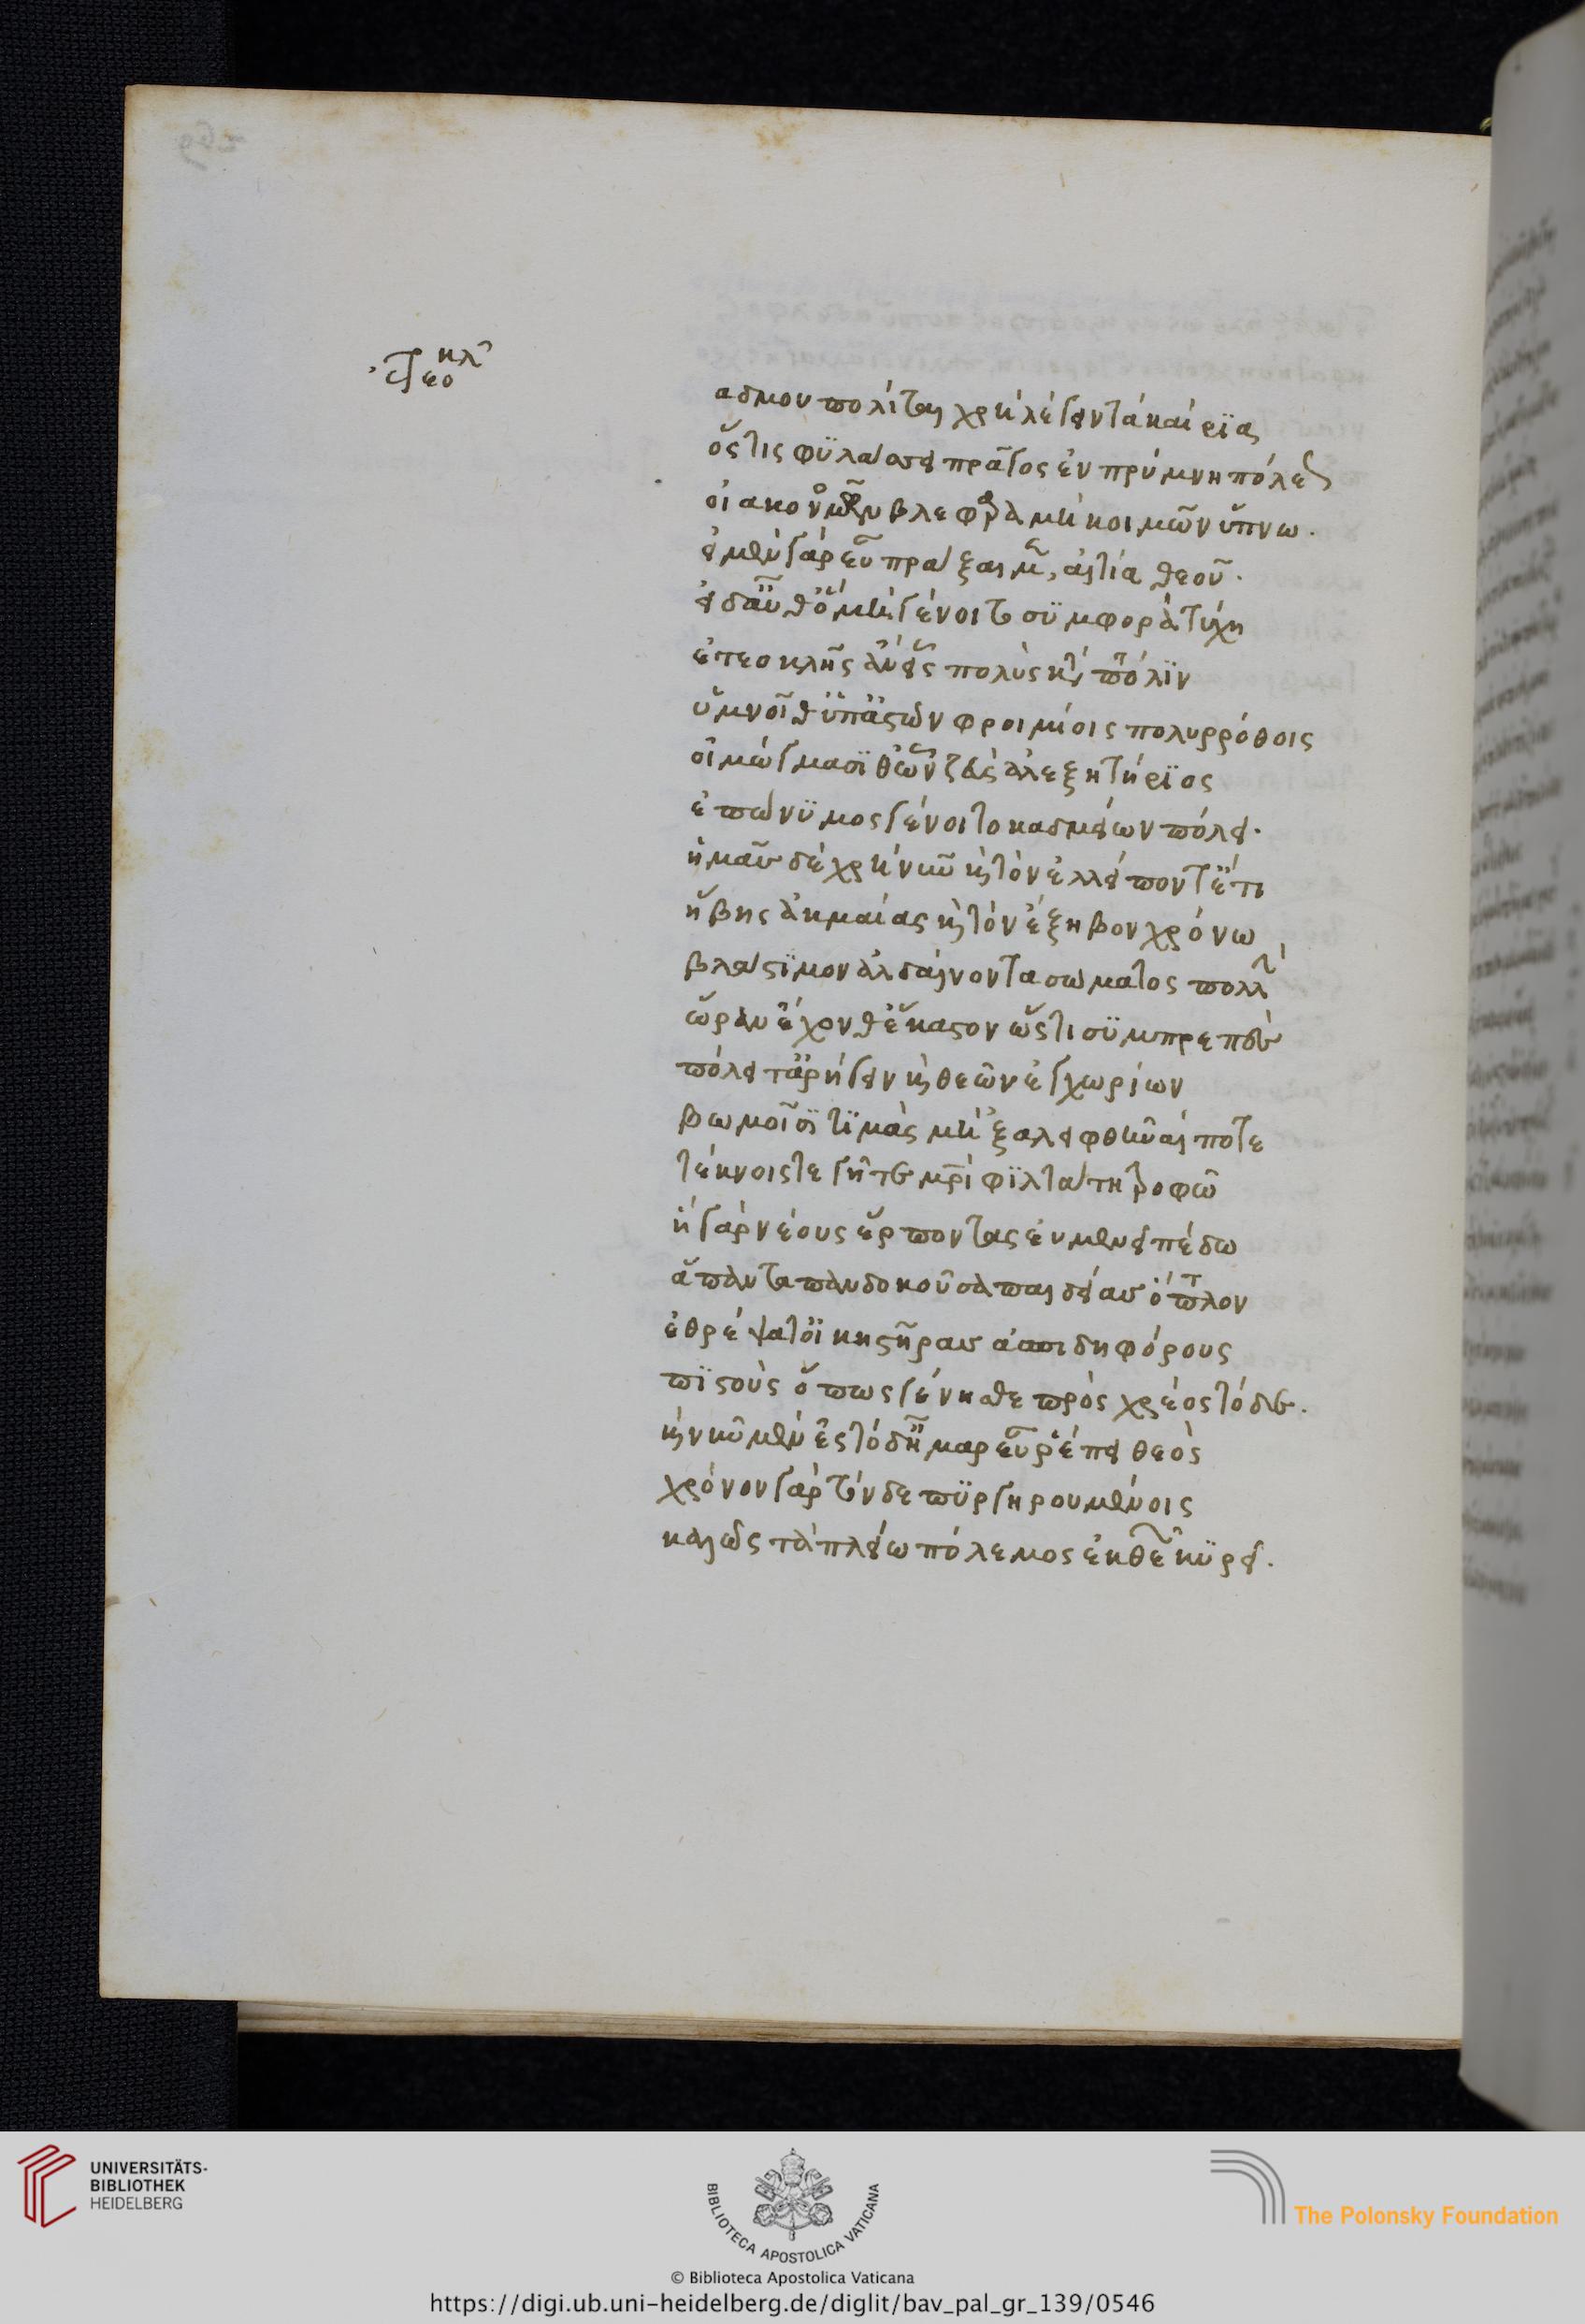 ἐτεοκλῆς
άδμου πολῖται χρὴ λέγειν τὰ καίρια
ὅστις φυλάσσει πρᾶγος ἐν πρύμνῃ πόλεως
οἴακα νωμῶν βλέφαρα μὴ κοιμῶν ὕπνω.
εἰ μὲν γὰρ εὖ πράξαιμεν, αἰτία θεοῦ.
εἰ δ' αὖθ' ὃ μὴ γένοιτο συμφορὰ τύχη
ἐτεοκλῆς ἂν εἷς πολὺς κατὰ πτόλιν
ὑμνοῖθ' ὑπ' ἀστῶν φροιμίοις πολυρρόθοις
οἰμώγμασί θ' ὧν ζεὺς ἀλεξητήριος
ἐπώνυμος γένοιτο καδμείων πόλει.
ἡμᾶς δὲ χρὴ νῦν καὶ τὸν ἐλλείποντ' ἔτι
ἥβης ἀκμαίας καὶ τὸν ἔξηβον χρόνω
βλαστιμὸν ἀλδαίνοντα σώματος πολὺν
ὥραν ἔχονθ' ἕκαστον ὥστι συμπρεπὲς
πόλει τ' ἀρήγειν καὶ θεῶν ἐγχωρίων
βωμοῖσι τιμὰς μὴ 'ξαλειφθῆναί ποτε
τέκνοις τε γῆ τε μητρὶ φιλτάτη τροφῶ
ἡ γὰρ νέους ἕρποντας εὐμενεῖ πέδω
ἅπαντα πανδοκοῦσα παιδείας ὄτλον
ἐθρέψατ' οἰκηστῆρας ἀσπιδηφόρους
πιστοὺς ὅπως γένησθε πρὸς χρέος τόδε.
καὶ νῦν μὲν ἐς τόδ' ἦμαρ εὖ ῥέπει θεὸς
χρόνον γὰρ τόνδε πυργηρουμένοις
καλῶς τὰ πλείω πόλεμος ἐκ θεῶν κυρεῖ.
UNIVERSITÄTS-
BIBLIOTHEK
HEIDELBERG
BIBLIOTECA APOSTOLICA VATICANA
The Polonsky Foundation
© Biblioteca Apostolica Vaticana
https://digi.ub.uni-heidelberg.de/diglit/bav_pal_gr_139/0546